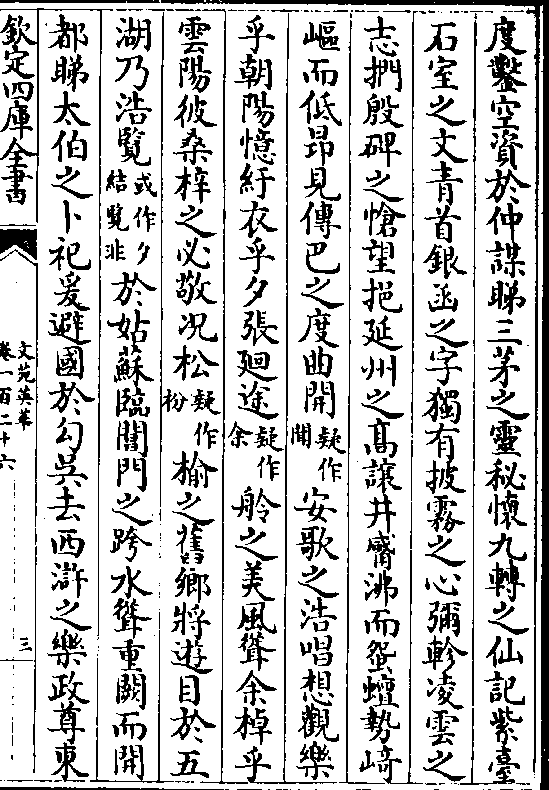 度鑿空資於仲謀睇三茅之靈秘懷九轉之仙記紫臺
石室之文青首銀函之字獨有披霧之心彌軫凌雲之
志捫殷碑之愴望挹延州之高讓井觱沸而蜿蟺勢﨑
嶇而低昂見傳巴之度曲開疑作聞安歌之浩唱想觀樂
乎朝陽憶紵衣乎夕張廻途疑作余舲之美風聳余棹乎
雲陽彼桑梓之必敬况松疑作枌榆之舊鄉將遊目於五
湖乃浩覽或作夕結覽非於姑蘇臨閶門之跨水聳重闕而開
都睇太伯之卜祀爰避國於勾吳去西滸之樂政尊東
欽定四庫全書
文苑英華
卷一百二十六
三